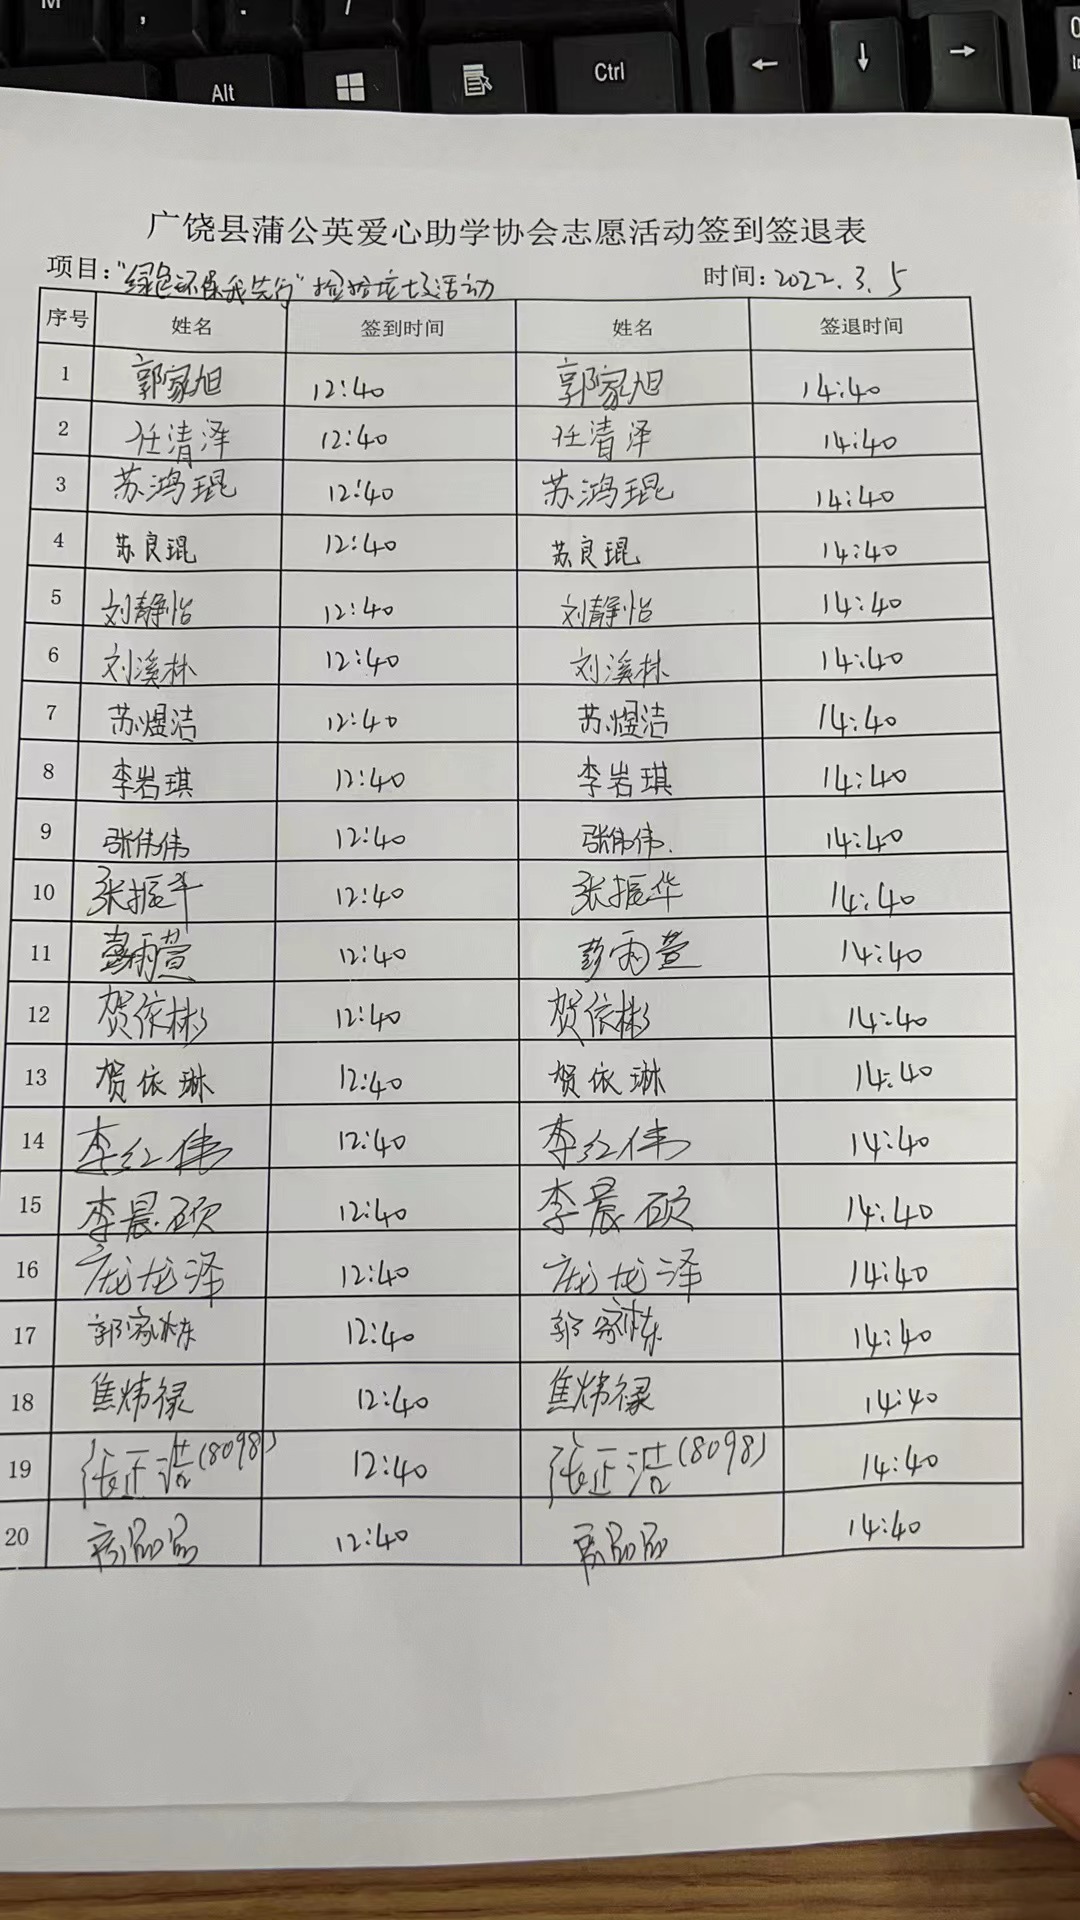 M , . /
Alt Ctrl ← ↓ →
广饶县蒲公英爱心助学协会志愿活动签到签退表
项目:"绿色环保我先行"捡拾垃圾活动 时间:2022.3.5
序号 姓名 签到时间 姓名 签退时间
1 郭家旭 12:40 郭家旭 14:40
2 任清泽 12:40 任清泽 14:40
3 苏鸿琨 12:40 苏鸿琨 14:40
4 苏良琨 12:40 苏良琨 14:40
5 刘静怡 12:40 刘静怡 14:40
6 刘溪林 12:40 刘溪林 14:40
7 苏煜洁 12:40 苏煜洁 14:40
8 李岩琪 12:40 李岩琪 14:40
9 张伟伟 12:40 张伟伟. 14:40
10 张振华 12:40 张振华 14:40
11 彭雨萱 12:40 彭雨萱 14:40
12 贺依彬 12:40 贺依彬 14:40
13 贺依琳 12:40 贺依琳 14:40
14 李红伟 12:40 李红伟 14:40
15 李晨硕 12:40 李晨硕 14:40
16 庞龙泽 12:40 庞龙泽 14:40
17 郭家栋 12:40 郭家栋 14:40
18 焦炜禄 12:40 焦炜禄 14:40
19 张正浩(8098) 12:40 张正浩(8098) 14:40
20 12:40 14:40